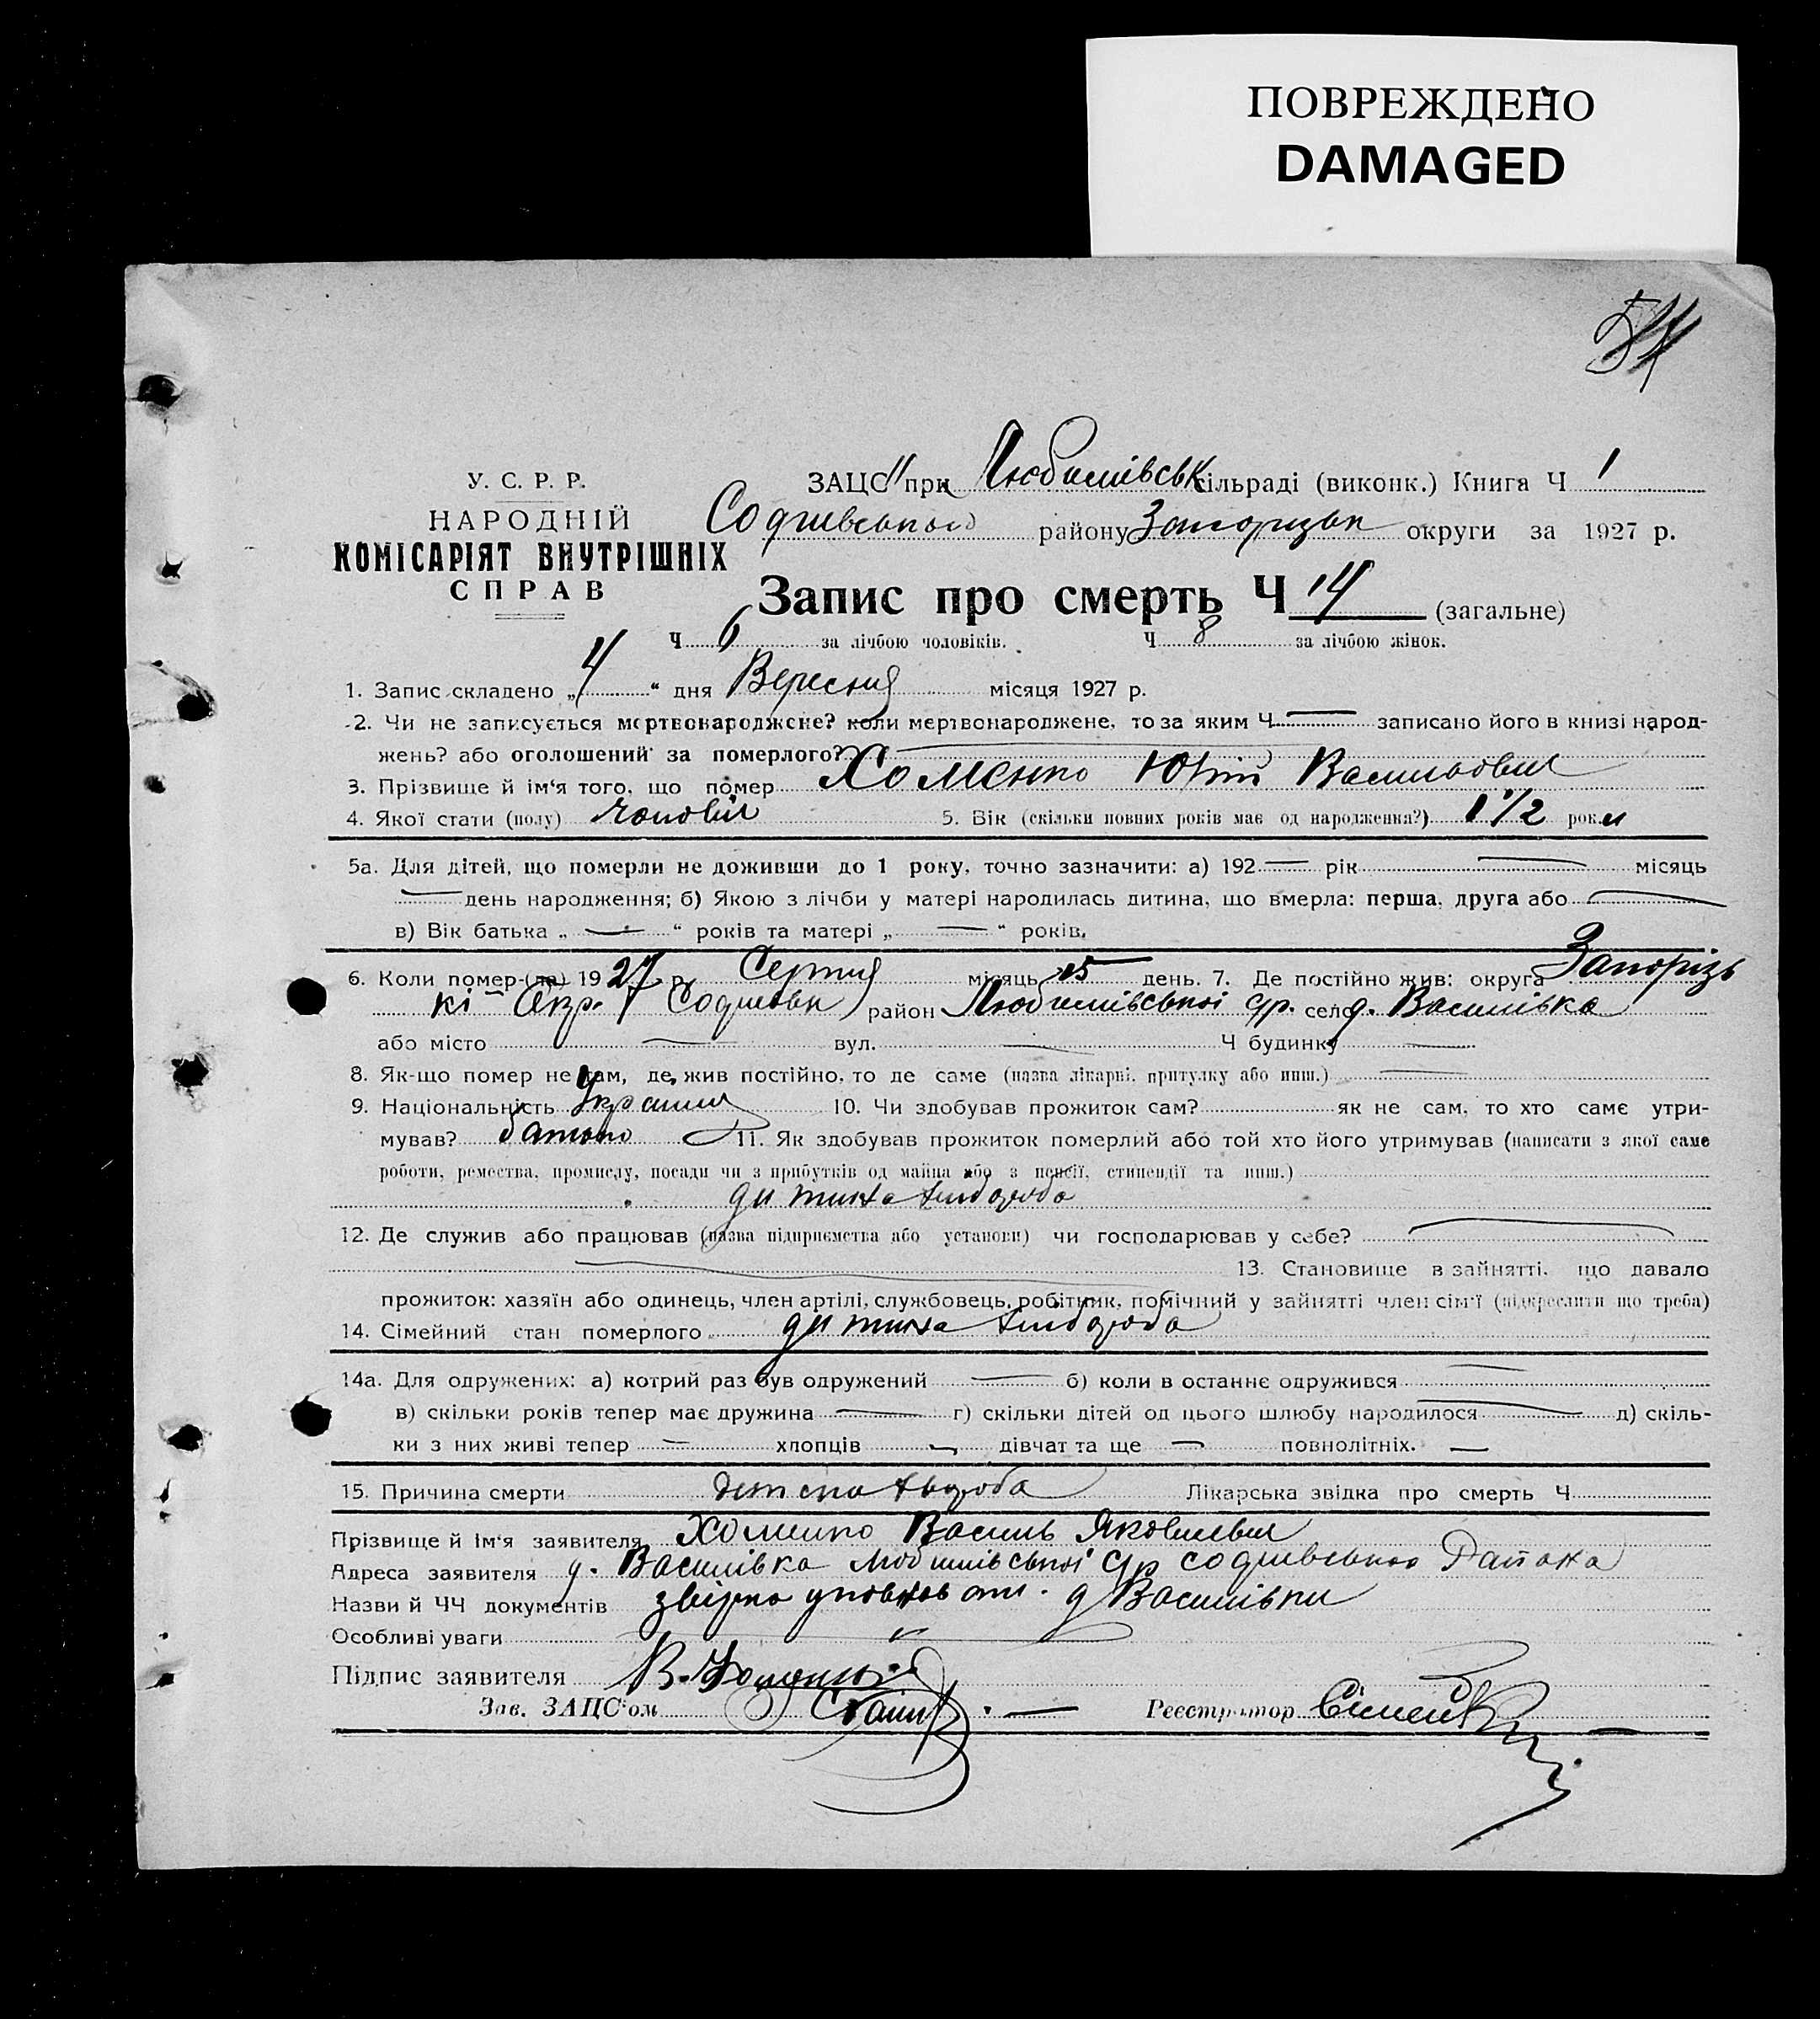 ПОВРЕЖДЕНО
DAMAGED
У. С. Р. Р.
НАРОДНІЙ
КОМІСАРІЯТ ВНУТРІШНІХ
СПРАВ
ЗАЦС при Любимівськ сільраді (виконк.) Книга Ч 1
району Запорізьк округи за 1927 р.
Запис про смерть Ч 14 (загальне)
Ч 6 за лічбою чоловіків. Ч 8 за лічбою жінок.
1. Запис складено „4“ дня Вересня місяця 1927 р.
2. Чи не записується мертвонароджене? коли мертвонароджене, то за яким Ч — записано його в книзі народ-
жень? або оголошений за померлого?
3. Прізвище й ім‘я того, що помер Хоменко Юрій Васильович
4. Якої стати (полу) чоловіч 5. Вік (скільки повних років має од народження?) 1 1/2 роки
5а. Для дітей, що померли не доживши до 1 року, точно зазначити: а) 192 — рік — місяць
— день народження; б) Якою з лічби у матері народилась дитина, що вмерла: перша, друга або —
в) Вік батька „ — “ років та матері „ — “ років.
6. Коли помер (ла) 1927 р. Серпня місяць 25 день. 7. Де постійно жив: округа Запорізь
кі Окр. район Любимівської с/р. село д. Василівка
або місто — вул. — Ч будинку —
8. Як-що помер не там, де жив постійно, то де саме (назва лікарні, притулку або инш.) —
9. Національність Україн 10. Чи здобував прожиток сам? як не сам, то хто саме утри-
мував? батько 11. Як здобував прожиток померлий або той хто його утримував (написати з якої саме
роботи, ремества, промислу, посади чи з прибутків од майна або з пенсії, стипендії та инш.)
дитина хлібороба
12. Де служив або працював (назва підприємства або установи) чи господарював у себе? —
13. Становище в зайнятті, що давало
прожиток: хазяїн або одинець, член артілі, службовець, робітник, помічний у зайнятті член сім‘ї (підкреслити що треба)
14. Сімейний стан померлого дитина хлібороба
14а. Для одружених: а) котрий раз був одружений — б) коли в останнє одружився —
в) скільки років тепер має дружина — г) скільки дітей од цього шлюбу народилося — д) скіль-
ки з них живі тепер — хлопців — дівчат та ще — повнолітніх. —
15. Причина смерти хвороба Лікарська звідка про смерть Ч
Прізвище й ім‘я заявителя Хоменко Василь Якович
Адреса заявителя д. Василівка Любимівської с/р
Назви й ЧЧ документів д Василівки
Особливі уваги
Підпис заявителя
Зав. ЗАЦС‘ом
Реєстратор